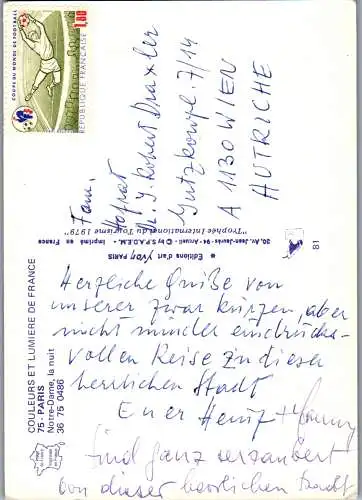 COUPE DU MONDE DE FOOTBALL
1,80
REPUBLIQUE FRANÇAISE
Fam.
Hofrat
Robert Draxler
7/14
A 1130 WIEN
AUTRICHE
"Trophée International du Tourisme 1979"
30, Av. Jean-Jaurès - 94 - Arcueil - © by S.P.A.D.E.M. - Imprimé en France
Editions d'art YVON PARIS
81
COULEURS ET LUMIERE DE FRANCE
75 - PARIS
Notre-Dame, la nuit
36 75 0486
Herzliche Grüße von
unserer zwar kurzen, aber
nicht minder eindrucks-
vollen Reise zu dieser
herrlichen Stadt
Euer
sind ganz verzaubert
von dieser herrlichen Stadt